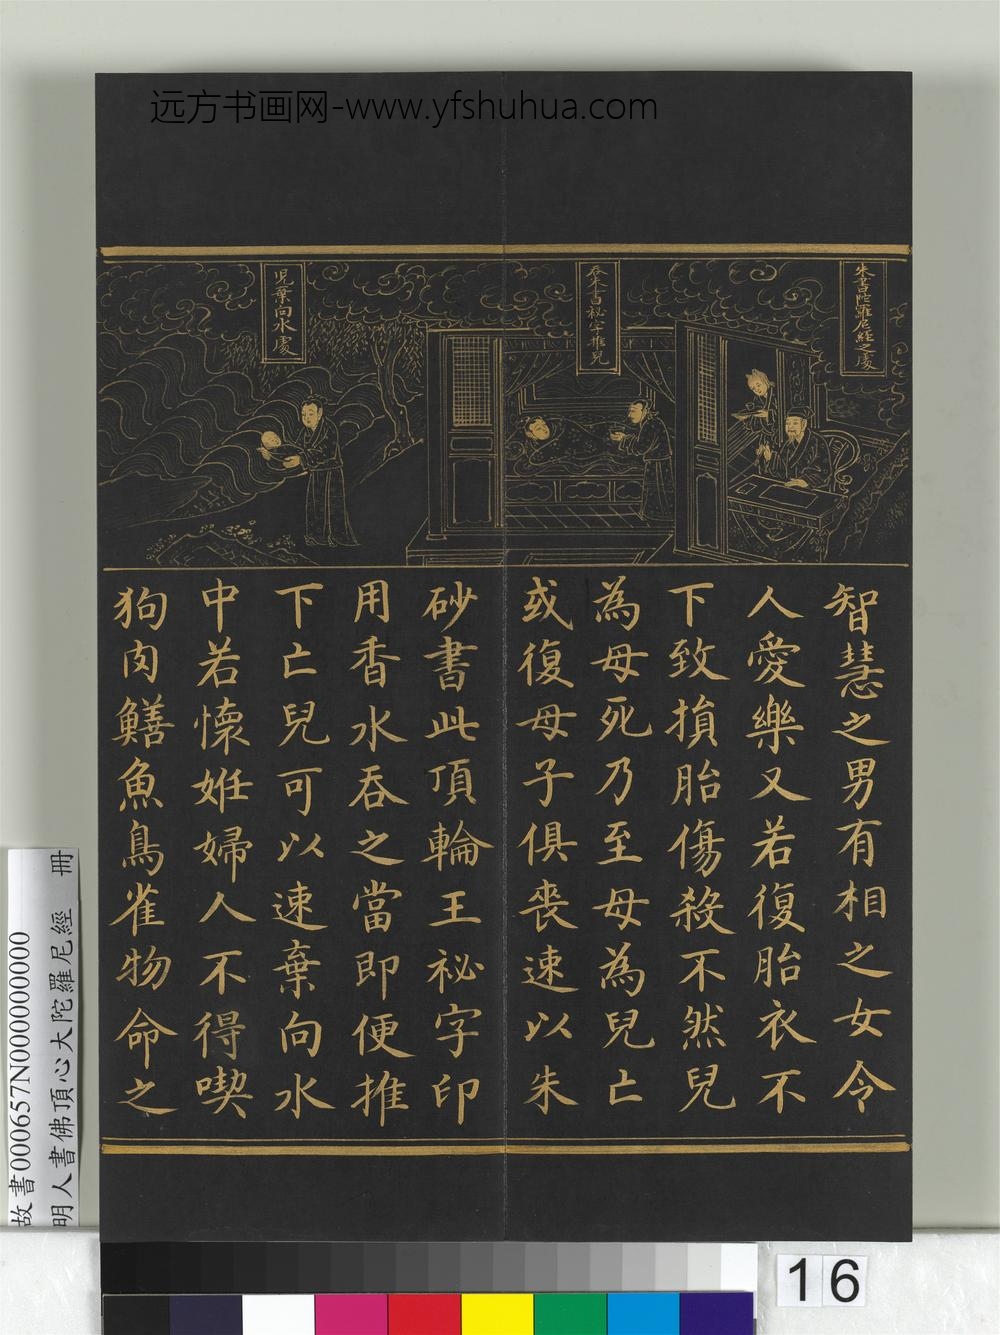 远方书画网-www.yfshuhua.com
朱書陀羅尼經之處
吞朱書秘字推兒
児棄向水處
智慧之男有相之女令
人愛樂又若復胎衣不
下致損胎傷殺不然兒
為母死乃至母為兒亡
或復母子俱喪速以朱
砂書此頂輪王祕字印
用香水吞之當即便推
下亡兒可以速棄向水
中若懷姙婦人不得喫
狗肉鱔魚鳥雀物命之
故書000657N000000000
明人書佛頂心大陀羅尼經 冊
16